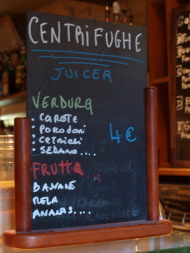 CENTRIFUGHE
JUICER
VERDURA
• CAROTE
• POMODORI
• CETRIOLI
• SEDANO....
4 €
FRUTTA
BANANE
MELA
ANANAS....